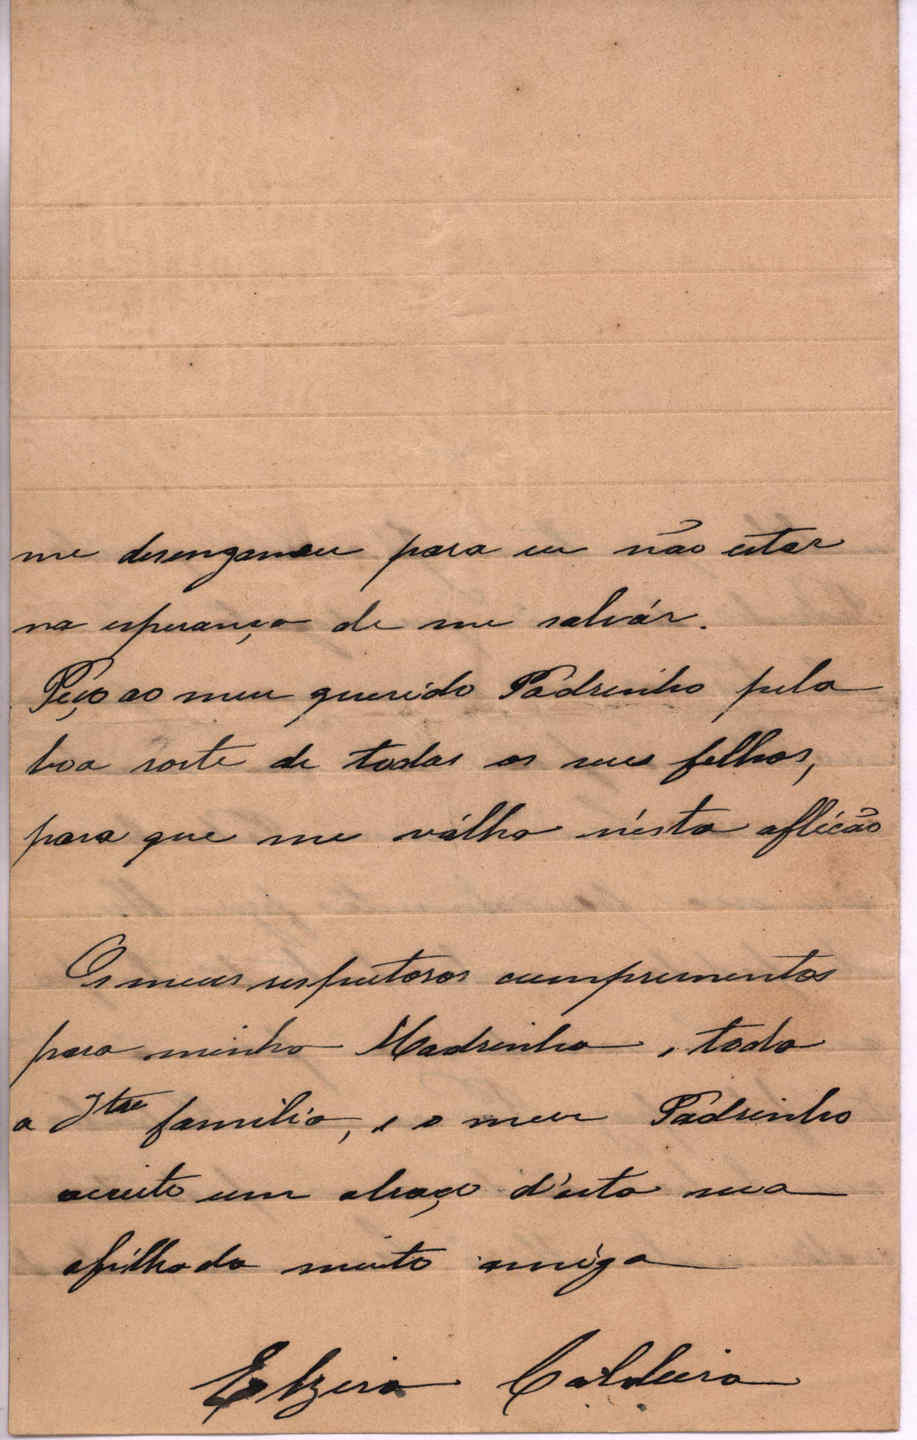 me desenganou para eu não estar
na esperança de me salvár.
Peço ao meu querido Padrinho pela
boa sorte de todos os seus filhos,
para que me válha n'ésta aflicão
Os meus respeitosos cumprimentos
para minha Madrinha, toda
a Jtre família, e o meu Padrinho
aceite um abraço d'esta sua
afilhada muito amiga
Elzira Caldeira